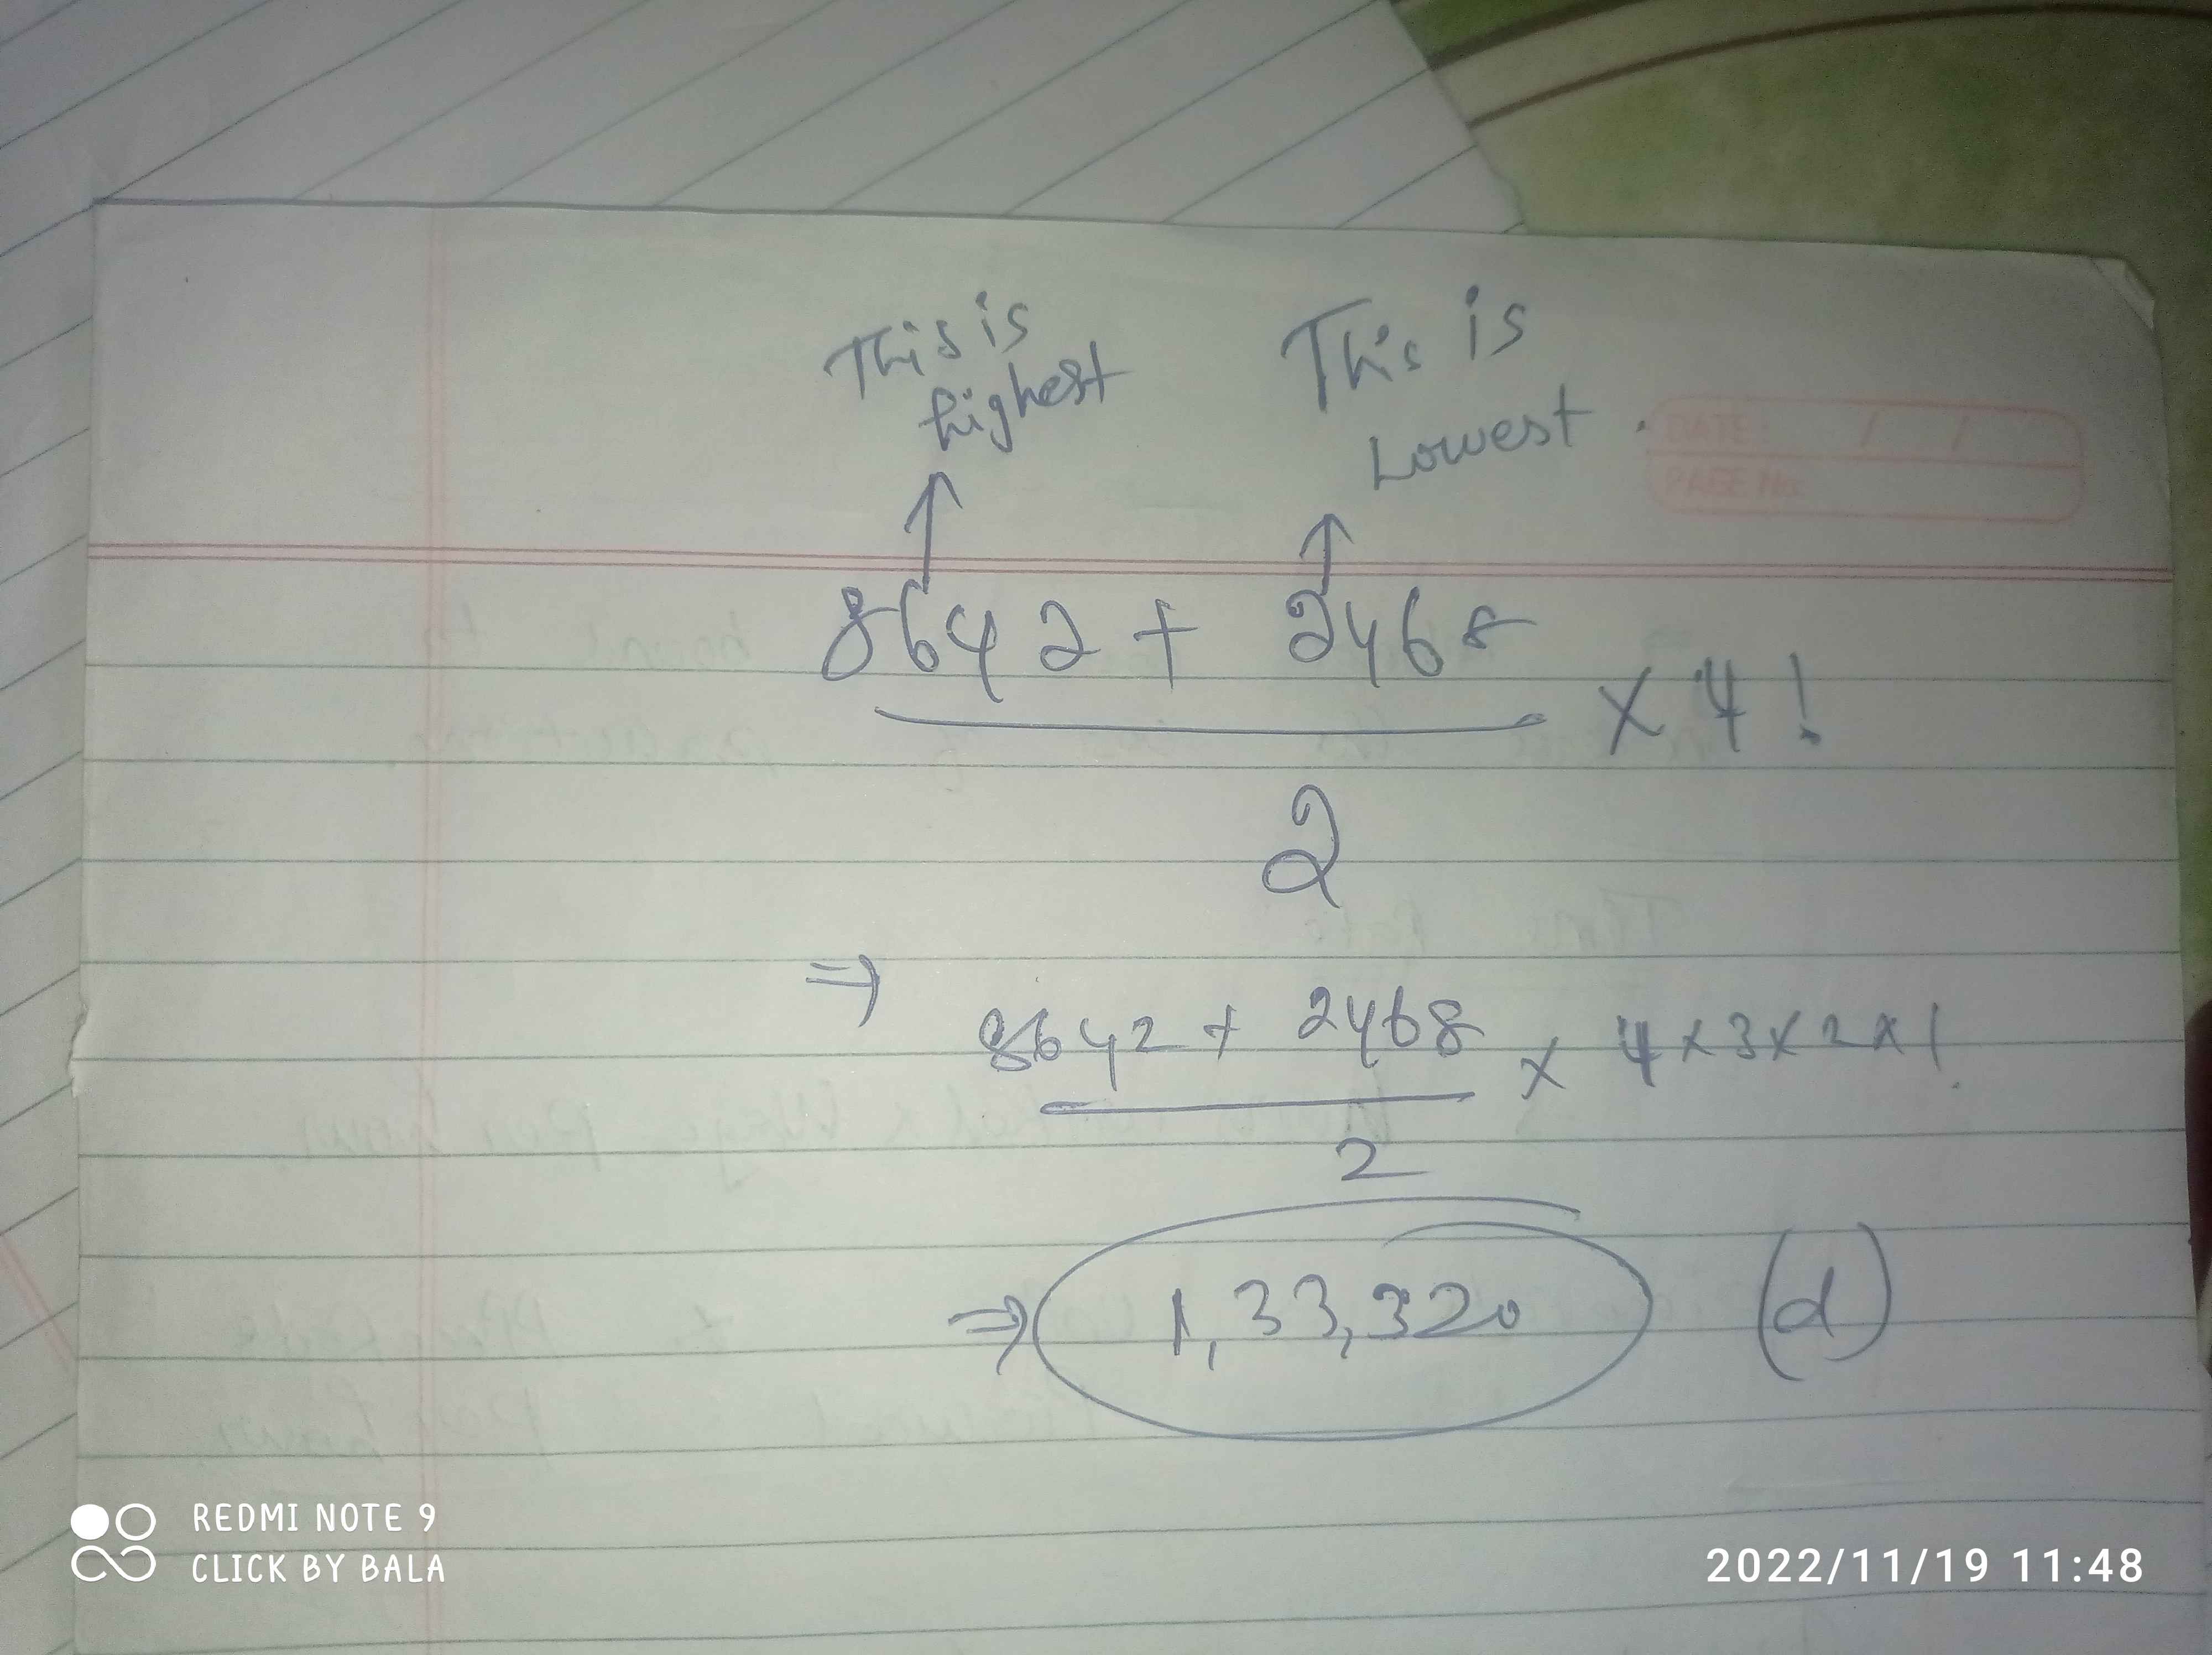 This is
highest
This is
Lowest.
DATE: / /
PAGE No.
↑ ↑
8642 + 2468
× 4!
2
⇒ 8642 + 2468 × 4×3×2×1
2
⇒ 1,33,320 (d)
REDMI NOTE 9
CLICK BY BALA
2022/11/19 11:48